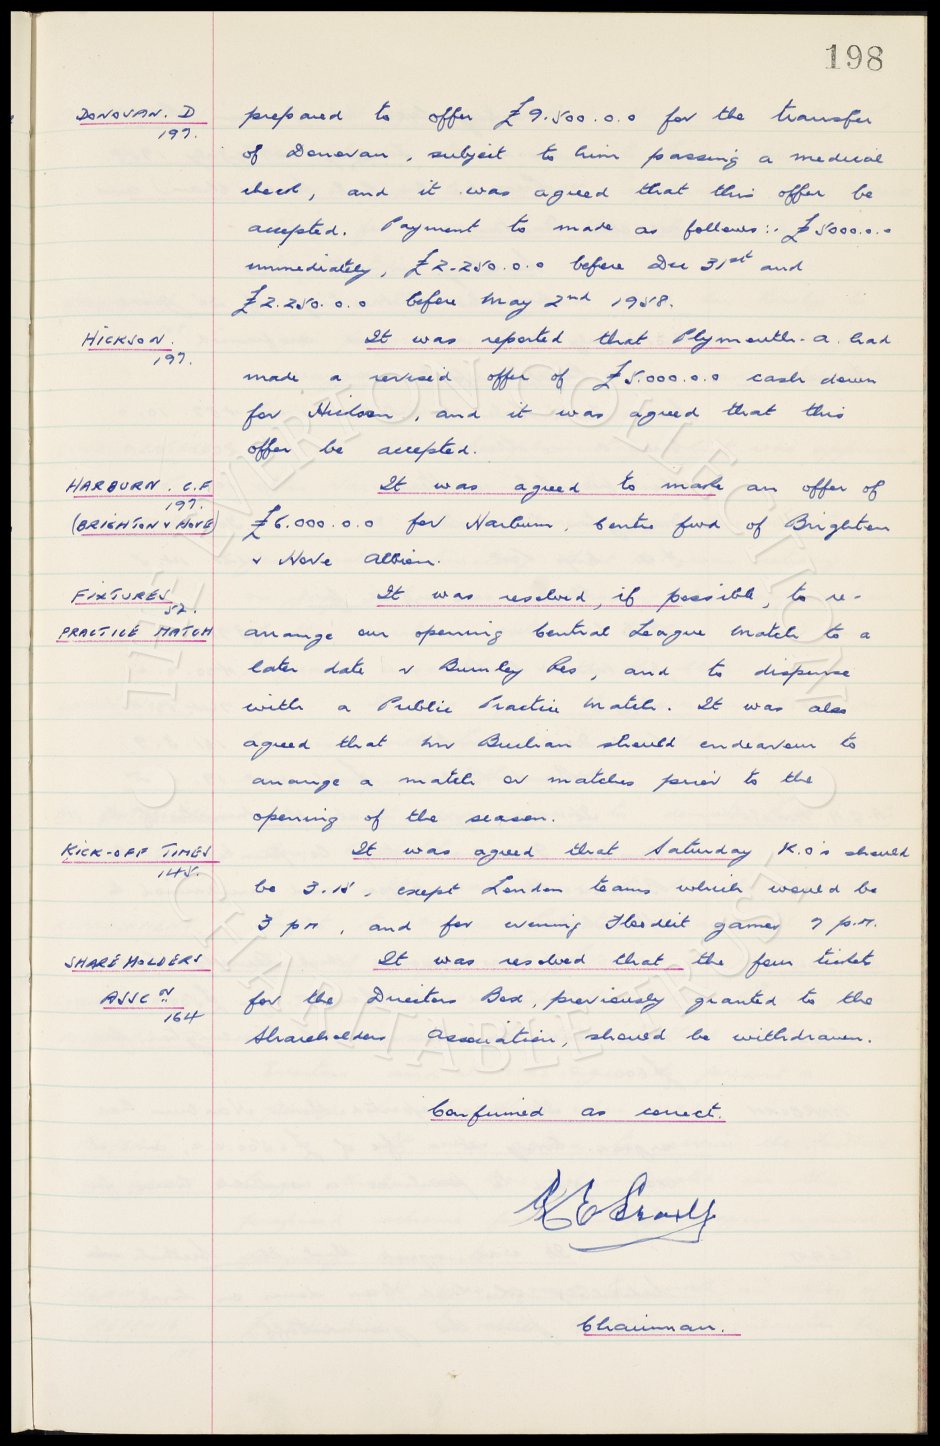 198
DONOVAN. D prepared to offer £9.500.0.0 for the transfer
197.
of Donovan, subject to him passing a medical
check, and it was agreed that this offer be
accepted. Payment to made as follows:- £5000.0.0
immediately, £2.250.0.0 before Dec 31st and
£2.250.0.0 before May 2nd 1958.
HICKSON. It was reported that Plymouth. A. had
197.
made a revised offer of £5.000.0.0 cash down
for Hickson, and it was agreed that this
offer be accepted.
HARBURN. C.F It was agreed to make an offer of
197.
(BRIGHTON & HOVE) £6.000.0.0 for Harburn, Centre fwd of Brighton
& Hove Albion.
FIXTURES It was resolved, if possible, to re-
52.
PRACTICE MATCH arrange our opening Central League Match to a
later date v Burnley Res, and to dispense
with a Public Practice Match. It was also
agreed that Mr Buchan should endeavour to
arrange a match or matches prior to the
opening of the season.
KICK-OFF TIMES It was agreed that Saturday K.O's should
145.
be 3.15, exept London teams which would be
3 PM, and for evening Floodlit games 7 p.m.
SHAREHOLDERS It was resolved that the four tickets
ASSCN for the Directors Box, previously granted to the
164
Shareholders Association, should be withdrawn.
Confirmed as correct.
Chairman.
THE EVERTON COLLECTION
CHARITABLE TRUST